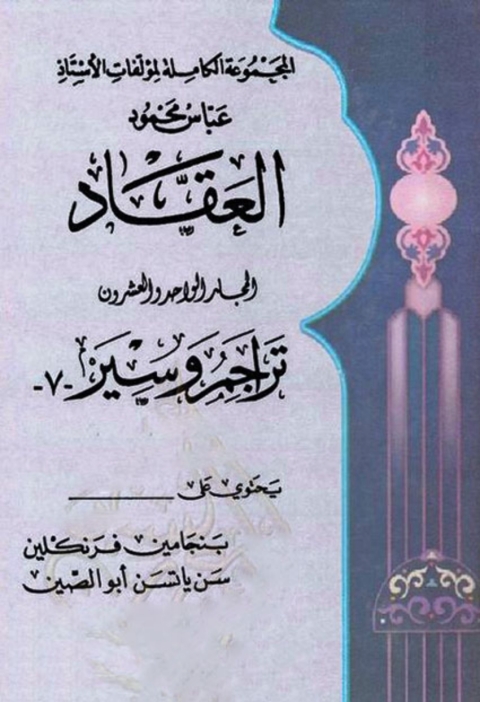 المجموعة الكاملة لمؤلفات الأستاذ
عباس محمود
العقاد
المجلد الواحد والعشرون
تراجم وسير -٧-
يحتوي على
بنجامين فرنكلين
سن ياتسن أبو الصين